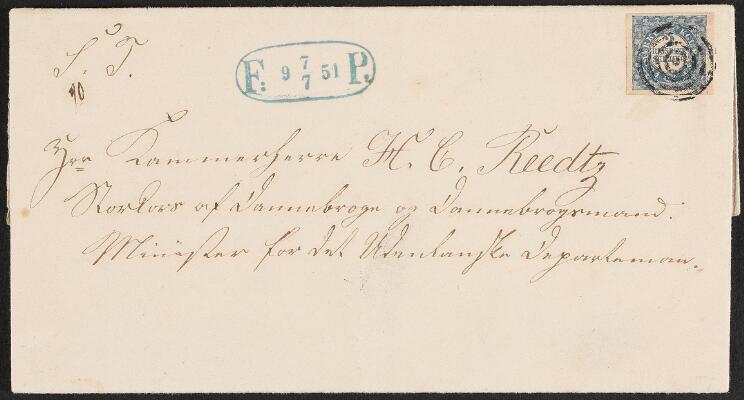 S. T.
F: 9 7/7 51 P.
10
Hrr Kammerherre H. C. Reedtz
Storkors af Dannebroge og Dannebrogsmand.
Minister for det Udenlanske Departeman.